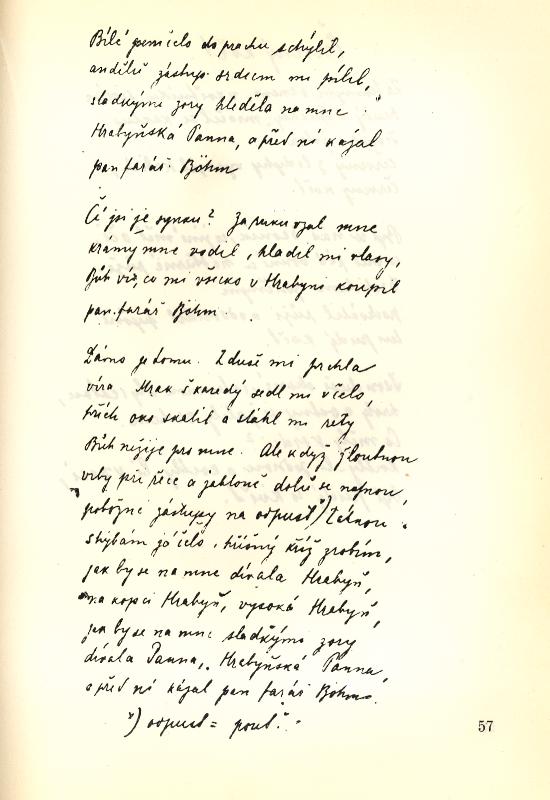 Bílé jsem čelo do prachu schýlil,
andělů zástup srdcem mi pílil,
sladkýma zory hleděla na mne
Hrabyňská Panna, a před ní kázal
pan farář Böhm
Čí jsi je synku? Za ruku vzal mne
krámy mne vodil, hladil mi vlasy,
Bůh ví, co mi všecko v Hrabyni koupil
pan farář Böhm.
Dávno je tomu. Z duše mi prchla
víra. Mrak škaredý sedl mi v čelo,
hřích oko skalil a stáhl mi rety
Bůh nežije pro mne. Ale když žloutnou
vrby při řece a jabloně dolů se napnou,
pobožné zástupy na odpust x) táhnou
shýbám já čelo, hříšný kříž zrobím,
jak by se na mne dívala Hrabyň,
na kopci Hrabyň, vysoká Hrabyň,
jak by se na mne sladkýma zory
dívala Panna, Hrabyňská Panna,
a před ní kázal pan farář Böhm.
x) odpust = pouť.
57